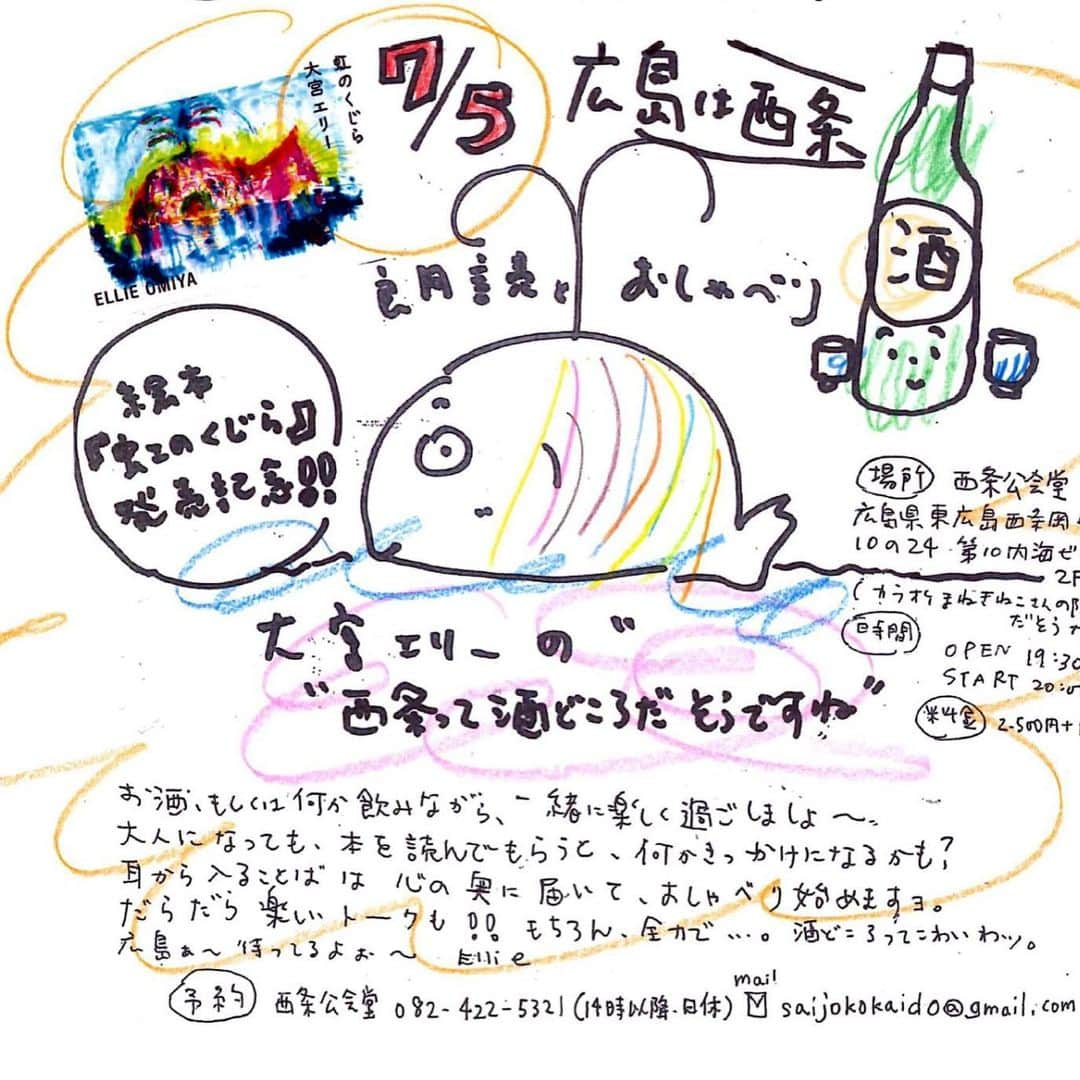 虹のくじら
大宮エリー
ELLIE OMIYA
7/5
広島は西条
朗読と おしゃべり
酒
絵本
『虹のくじら』
発売記念!!
場所 西条公会堂
広島県東広島西条岡
10の24 第10内海ビ
2F
(カラオケまねきねこさんの
だそう
時間
OPEN 19:30
START 20:0
料金 2500円+
大宮エリーの"
"西条って酒どころだそうですね"
お酒、もしくは何か飲みながら、一緒に楽しく過ごしましょ〜。
大人になっても、本を読んでもらうと、何かきっかけになるかも?
耳から入ることばは 心の奥に届いて、おしゃべり始めますヨ。
だらだら楽しいトークも!! もちろん、全力で…。酒どころってこわいわッ。
広島ぁ〜待ってるよぉ〜 Ellie
予約 西条公会堂 082-422-5321(14時以降・日休) mail saijokokaido@gmail.com